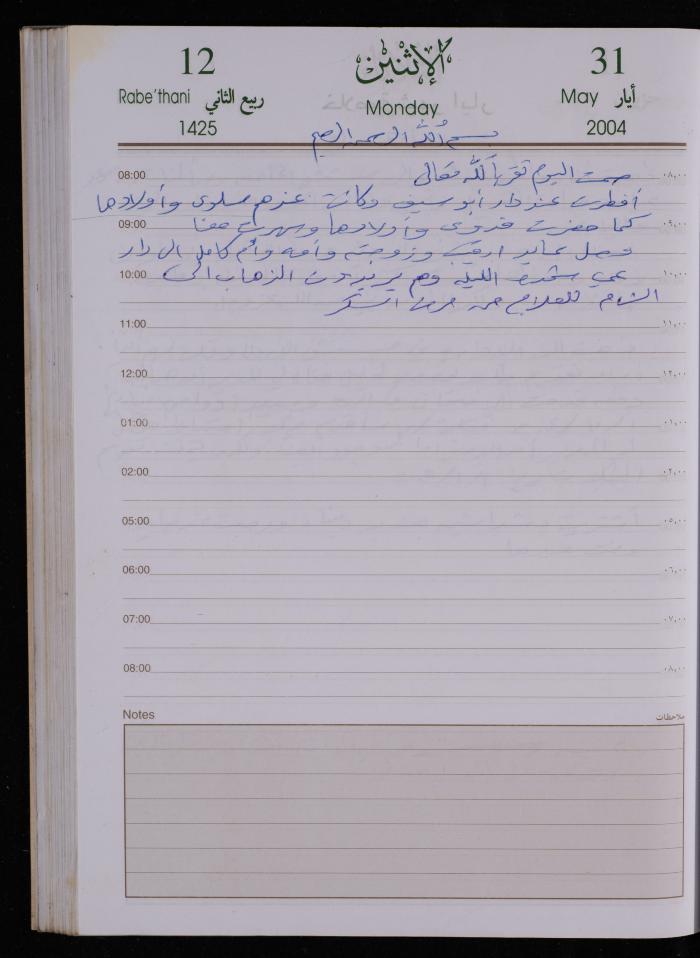 12 الإثنين 31
Rabe'thani ربيع الثاني Monday May أيار
1425 2004
بسم الله الرحمن الرحيم
08:00 صمت اليوم تقرباً لله تعالى ٠٨,٠٠
أفطرت عند دار أبو سيف وكانت عندهم سلوى وأولادها
09:00 كما حضرت فدوى وأولادها وسهرت معنا ٠٩,٠٠
وصل عايد وزوجته وأمه وأم كامل الى دار
10:00 عمي الليلة وهم يريدون الذهاب الى ١٠,٠٠
الشام للعلاج من مرض السكر
11:00 ١١,٠٠
12:00 ١٢,٠٠
01:00 ٠١,٠٠
02:00 ٠٢,٠٠
05:00 ٠٥,٠٠
06:00 ٠٦,٠٠
07:00 ٠٧,٠٠
08:00 ٠٨,٠٠
Notes ملاحظات